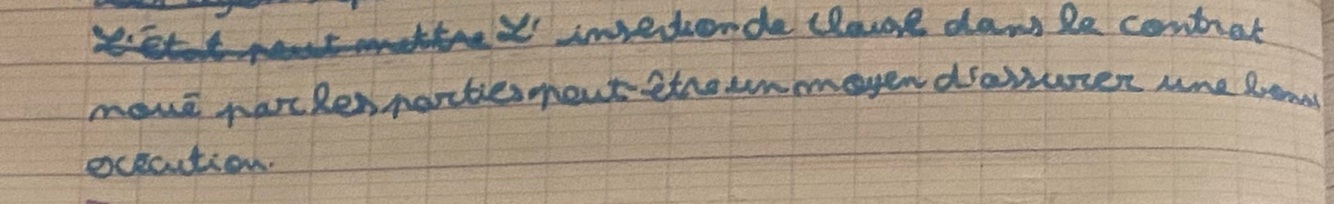 L'État peut mettre L' insertion de clause dans le contrat
noué par les parties peut-être un moyen d'assurer une bonne
execution.